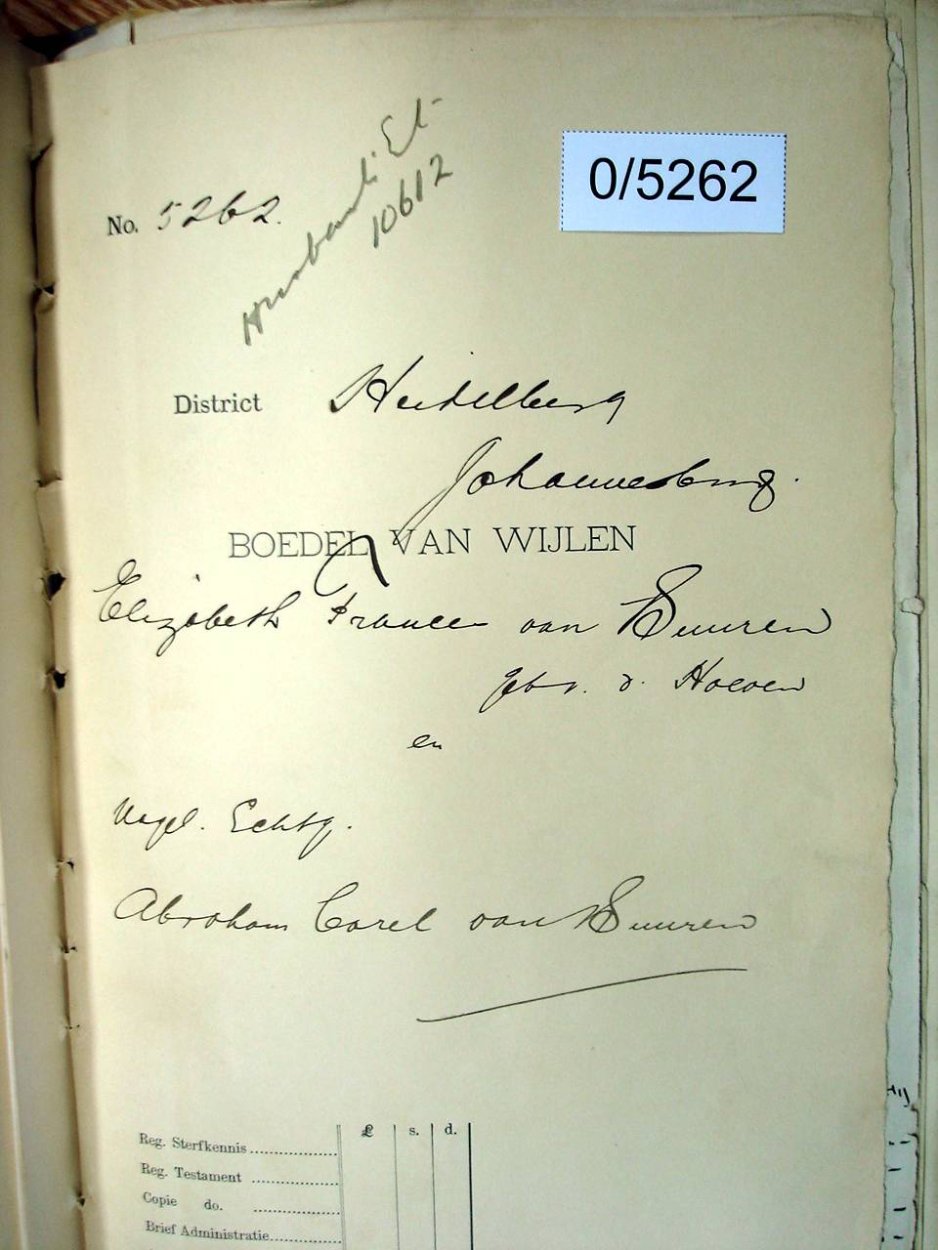 0/5262
Husband's Est
10612
No. 5262.
District Heidelberg
Johannesburg.
BOEDEL VAN WIJLEN
Elizabeth France van Buuren
geb. v. d. Hoeven
en
Nagel. Echtg.
Abraham Carel van Buuren
£ s. d.
Reg. Sterfkennis
Reg. Testament
Copie do.
Brief Administratie